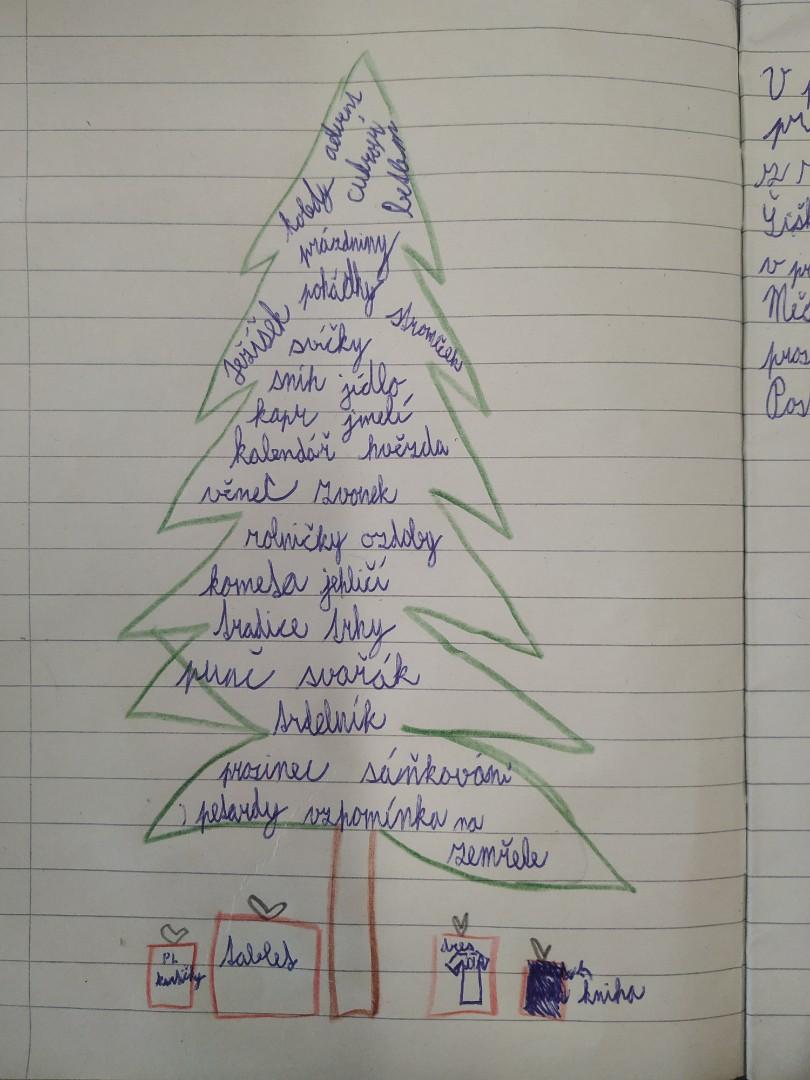 advent
cukroví
betlém
koledy
prázdniny
pohádky
Ježíšek
stromeček
svíčky
sníh jídlo
kapr jmelí
kalendář hvězda
věnec zvonek
rolničky ozdoby
kometa jehličí
tradice trhy
punč svařák
trdelník
prosinec sáňkování
petardy vzpomínka na
zemřelé
PL
kartičky
tablet
dres
kniha
V p
př
z r
Šišk
v př
Měc
pros
Pos